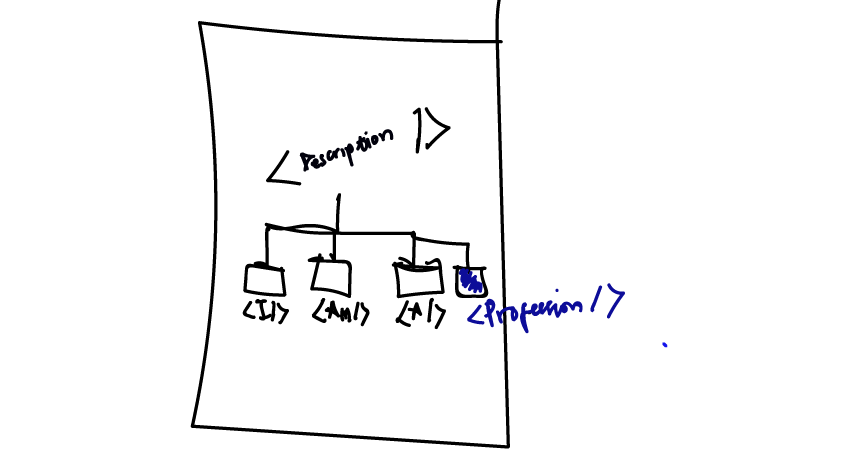 <Description />
<I/> <Am/> <A/> <Profession />